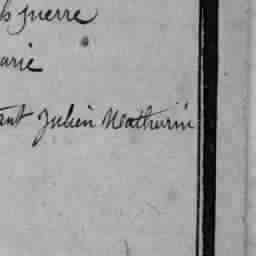 Pierre
arie
ant Julien Mathurin